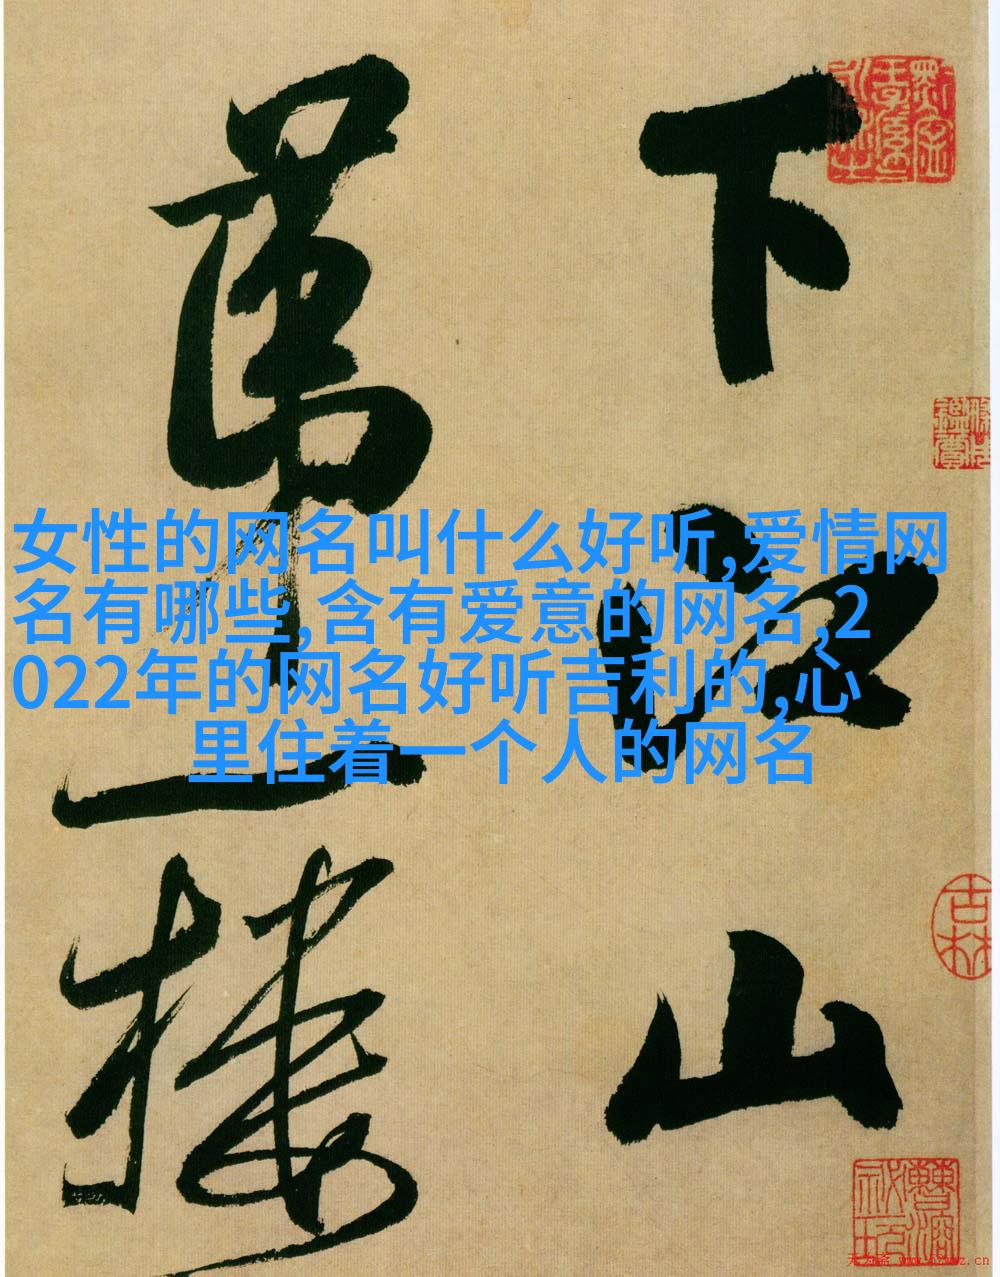 下江山
第一樓
女性的网名叫什么好听,爱情网
名有哪些,含有爱意的网名,2
022年的网名好听吉利的,心
里住着一个人的网名